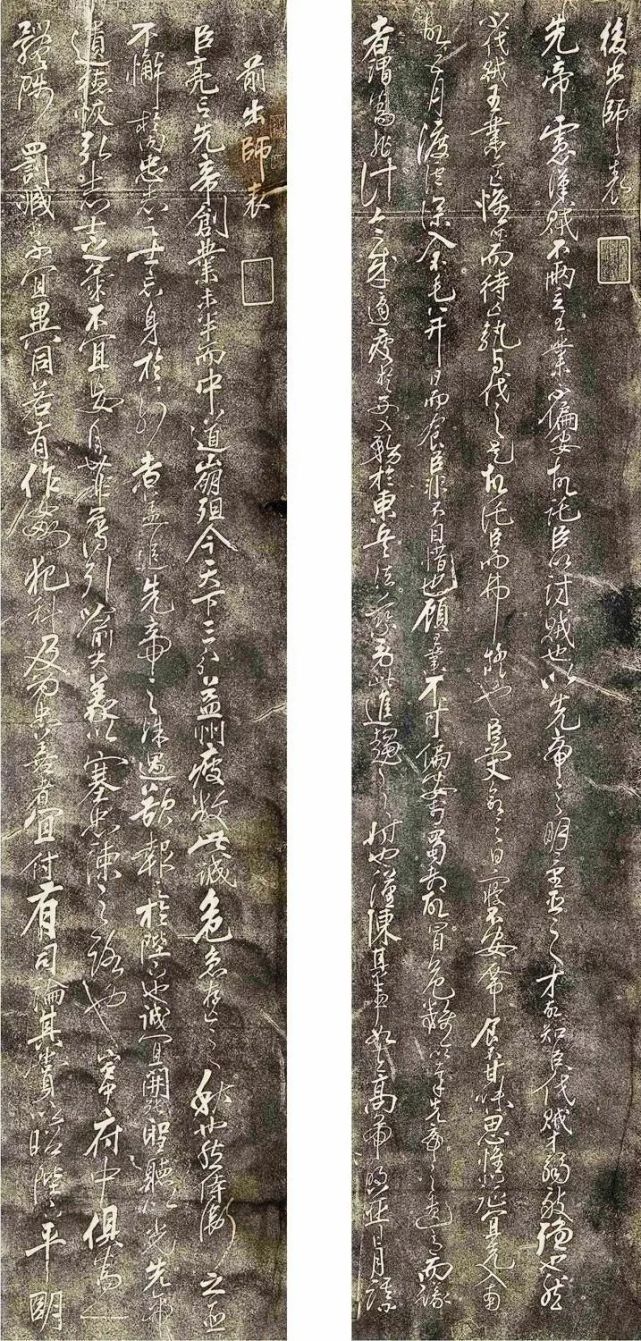 後出師表
先帝慮漢賊不兩立王業不偏安故託臣以討賊也以先帝之明量臣之才故知臣伐賊才弱敵強也然
不伐賊王業亦亡惟坐而待亡孰與伐之是故託臣而弗疑也臣受命之日寢不安席食不甘味思惟北征宜先入南
故五月渡瀘深入不毛并日而食臣非不自惜也顧王業不可偏安於蜀都故冒危難以奉先帝之遺意而議
者謂為非計今賊適疲於西又務於東兵法乘勞此進趨之時也謹陳其事如左高帝明並日月謀
前出師表
臣亮言先帝創業未半而中道崩殂今天下三分益州疲敝此誠危急存亡之秋也然侍衛之臣
不懈於內忠志之士忘身於外者蓋追先帝之殊遇欲報之於陛下也誠宜開張聖聽以光先帝
遺德恢弘志士之氣不宜妄自菲薄引喻失義以塞忠諫之路也宮中府中俱為一
體陟罰臧否不宜異同若有作奸犯科及為忠善者宜付有司論其刑賞以昭陛下平明